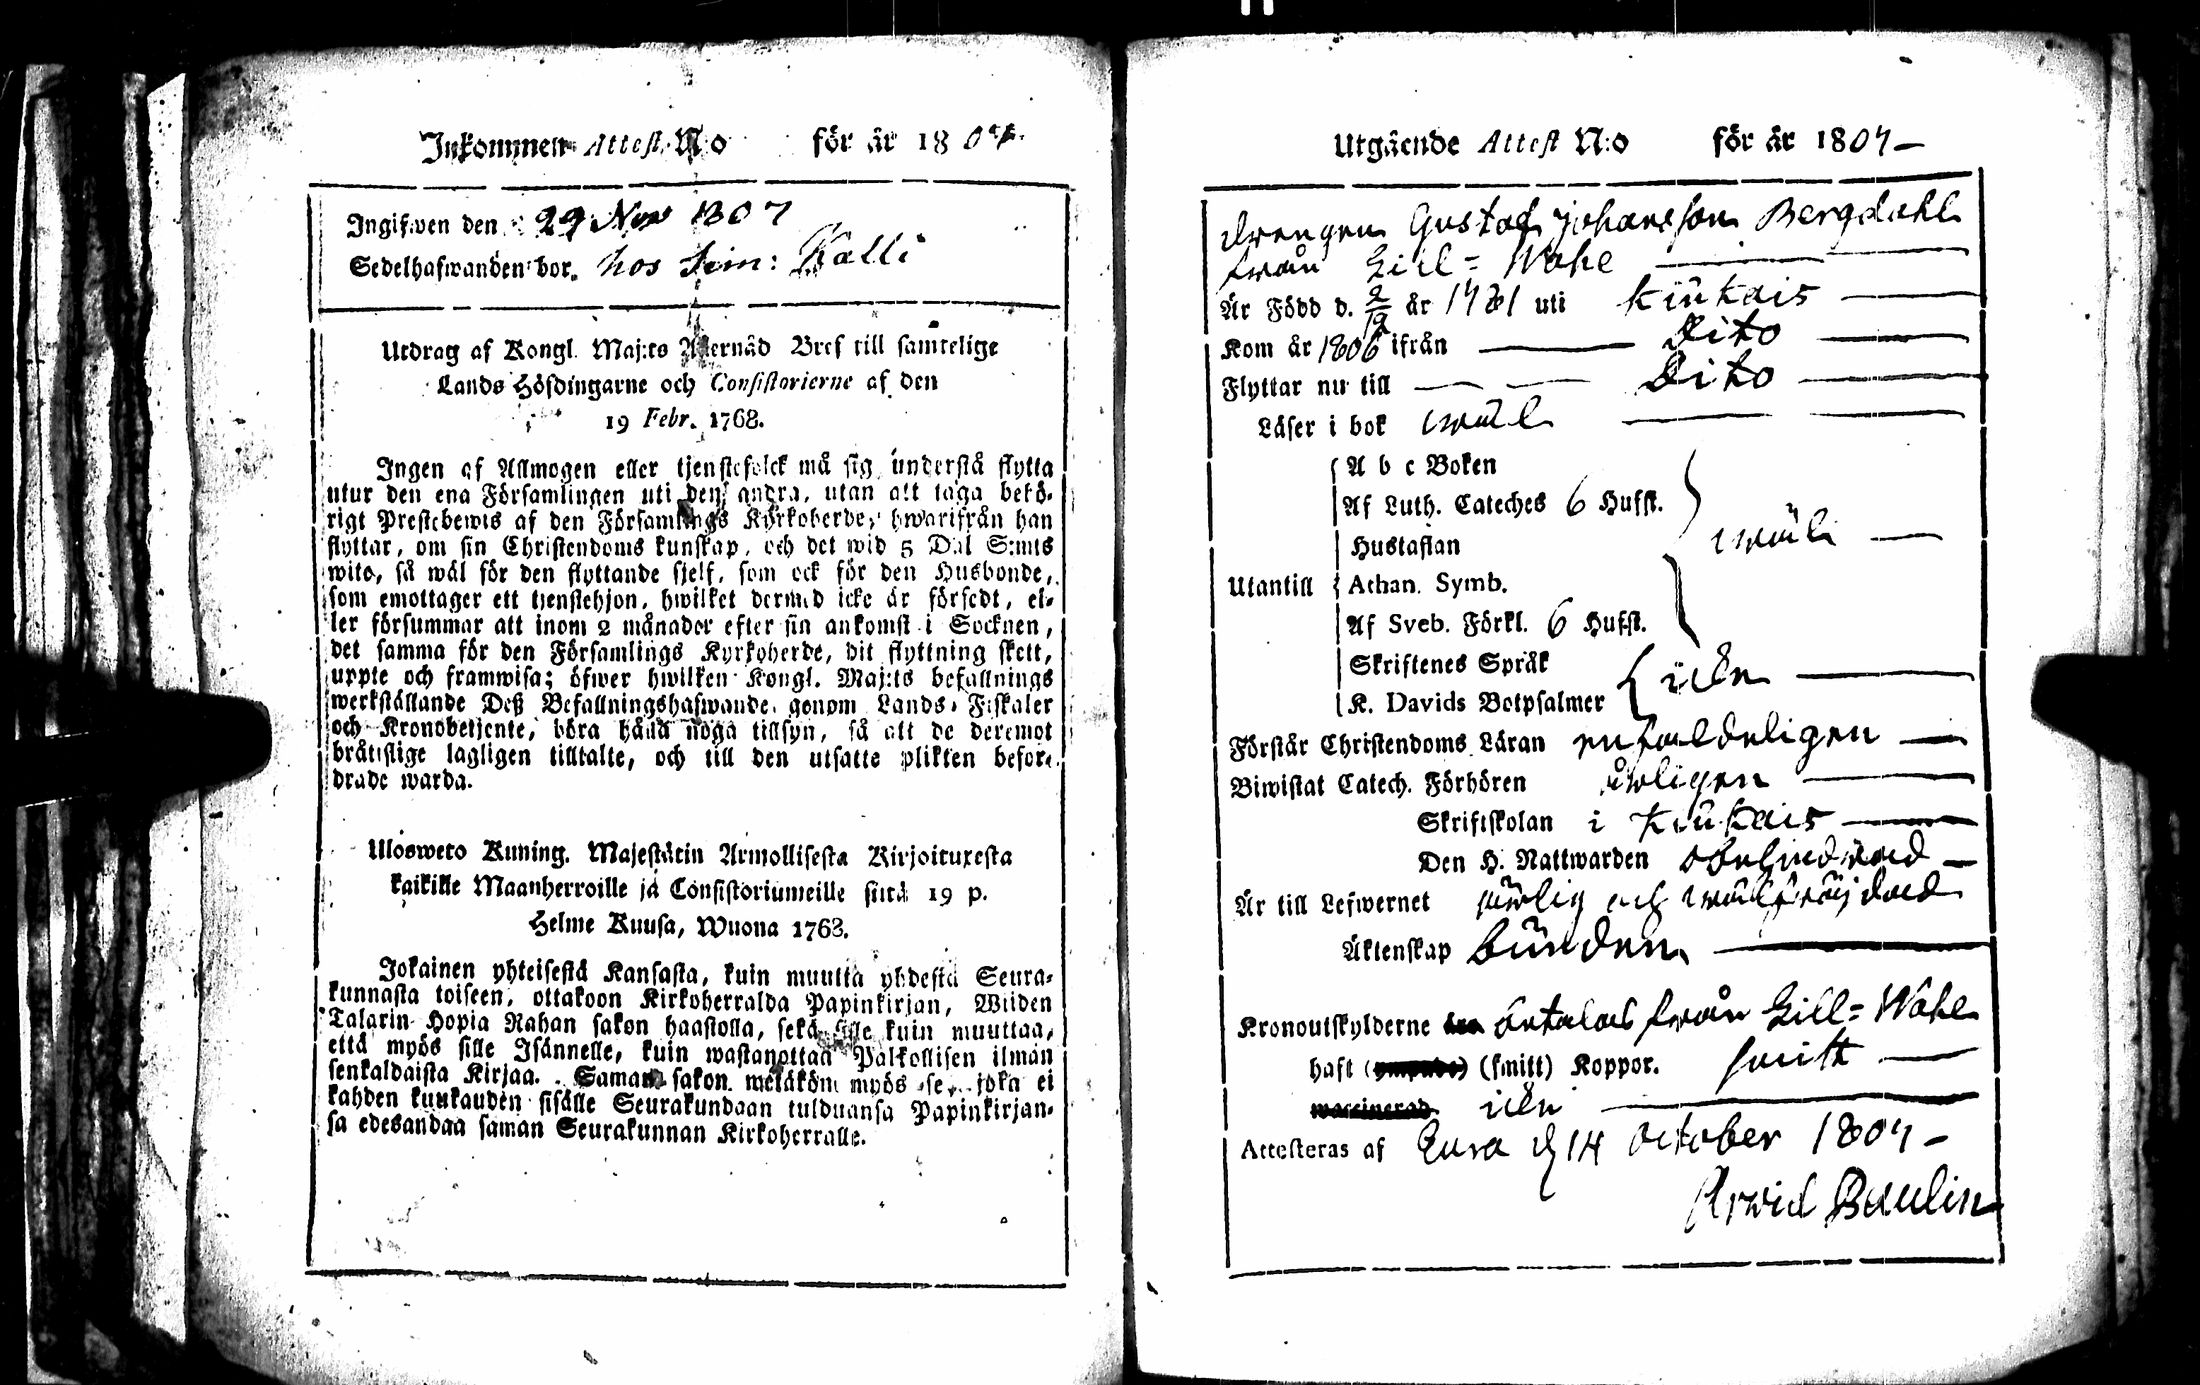 Inkommen Attest N:o för år 1807.
Ingifwen den 29 Nov 1807
Sedelhafwanden bor. hos Sim: Kalli
Utdrag af Kongl. Maj:ts Allernåd Bref till samtelige
Lands Höfdingarne och Consistorierne af den
19 Febr. 1768.
Ingen af Allmogen eller tjenstefolck må sig understå flytta
utur den ena Församlingen uti den andra, utan att taga behö-
rigt Prestebewis af den Församlings Kyrkoherde, hwarifrån han
flyttar, om sin Christendoms kunskap, och det wid 5 Dal S:mts
wite, så wäl för den flyttande sjelf, som ock för den Husbonde,
som emottager ett tjenstehjon, hwilket dermed icke är försedt, el-
ler försummar att inom 2 månader efter sin ankomst i Socknen,
det samma för den Församlings Kyrkoherde, dit flyttning skett,
uppte och framwisa; öfwer hwilken Kongl. Maj:ts befallnings
werkställande Deß Befallningshafwande, genom Lands-Fiskaler
och Kronobetjente, böra hålla noga tillsyn, så att de deremot
bråtislige lagligen tilltalte, och till den utsatte plikten befor-
drade warda.
Ulosweto Kuning. Majestätin Armollisesta Kirjoituxesta
kaikille Maanherroille ja Consistoriumeille siitä 19 p.
Helme Kuusa, Wuona 1768.
Jokainen yhteisestä Kansasta, kuin muutta yhdestä Seura-
kunnasta toiseen, ottakoon Kirkoherralda Papinkirjan, Wiiden
Talarin Hopia Rahan sakon haastolla, sekä sille kuin muuttaa,
että myös sille Isännelle, kuin wastanottaa Palkollisen ilman
senkaldaista Kirjaa. Saman sakon wetäköm myös se, joka ei
kahden kuukauden sisälle Seurakundaan tulduansa Papinkirjan-
sa edesandaa saman Seurakunnan Kirkoherralle.
Utgående Attest N:o för år 1807-
drengen Gustaf Johansson Bergdahl
från Lill-Wahe
Är Född d. 2/12 år 1781 uti Kiukais
Kom år 1806 ifrån Dito
Flyttar nu till Dito
Läser i bok wäl
A b c Boken
Af Luth. Cateches 6 Hufst.
Hustaflan wäl
Utantill Athan. Symb.
Af Sveb. Förkl. 6 Hufst.
Skriftenes Språk icke
K. Davids Botpsalmer
Förstår Christendoms Läran enfaldeligen
Biwistat Catech. Förhören årligen
Skriftskolan i Kiukais
Den H. Nattwarden obehindrad
Är till Lefwernet ärlig och wälfräjdad
Äktenskap bunden
Kronoutskylderne betalas från Lill-Wahe
haft (smitt) Koppor. smitt
icke
Attesteras af Eura d 14 October 1807-
Arwid Paulin